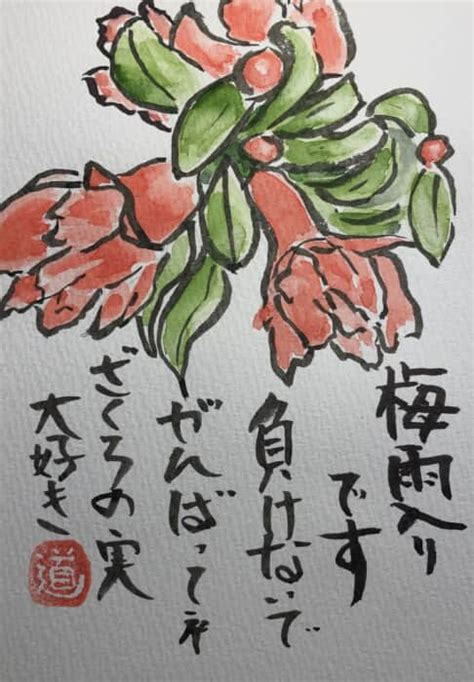 梅雨入り
です
負けないで
がんばってネ
ざくろの実
大好き
道